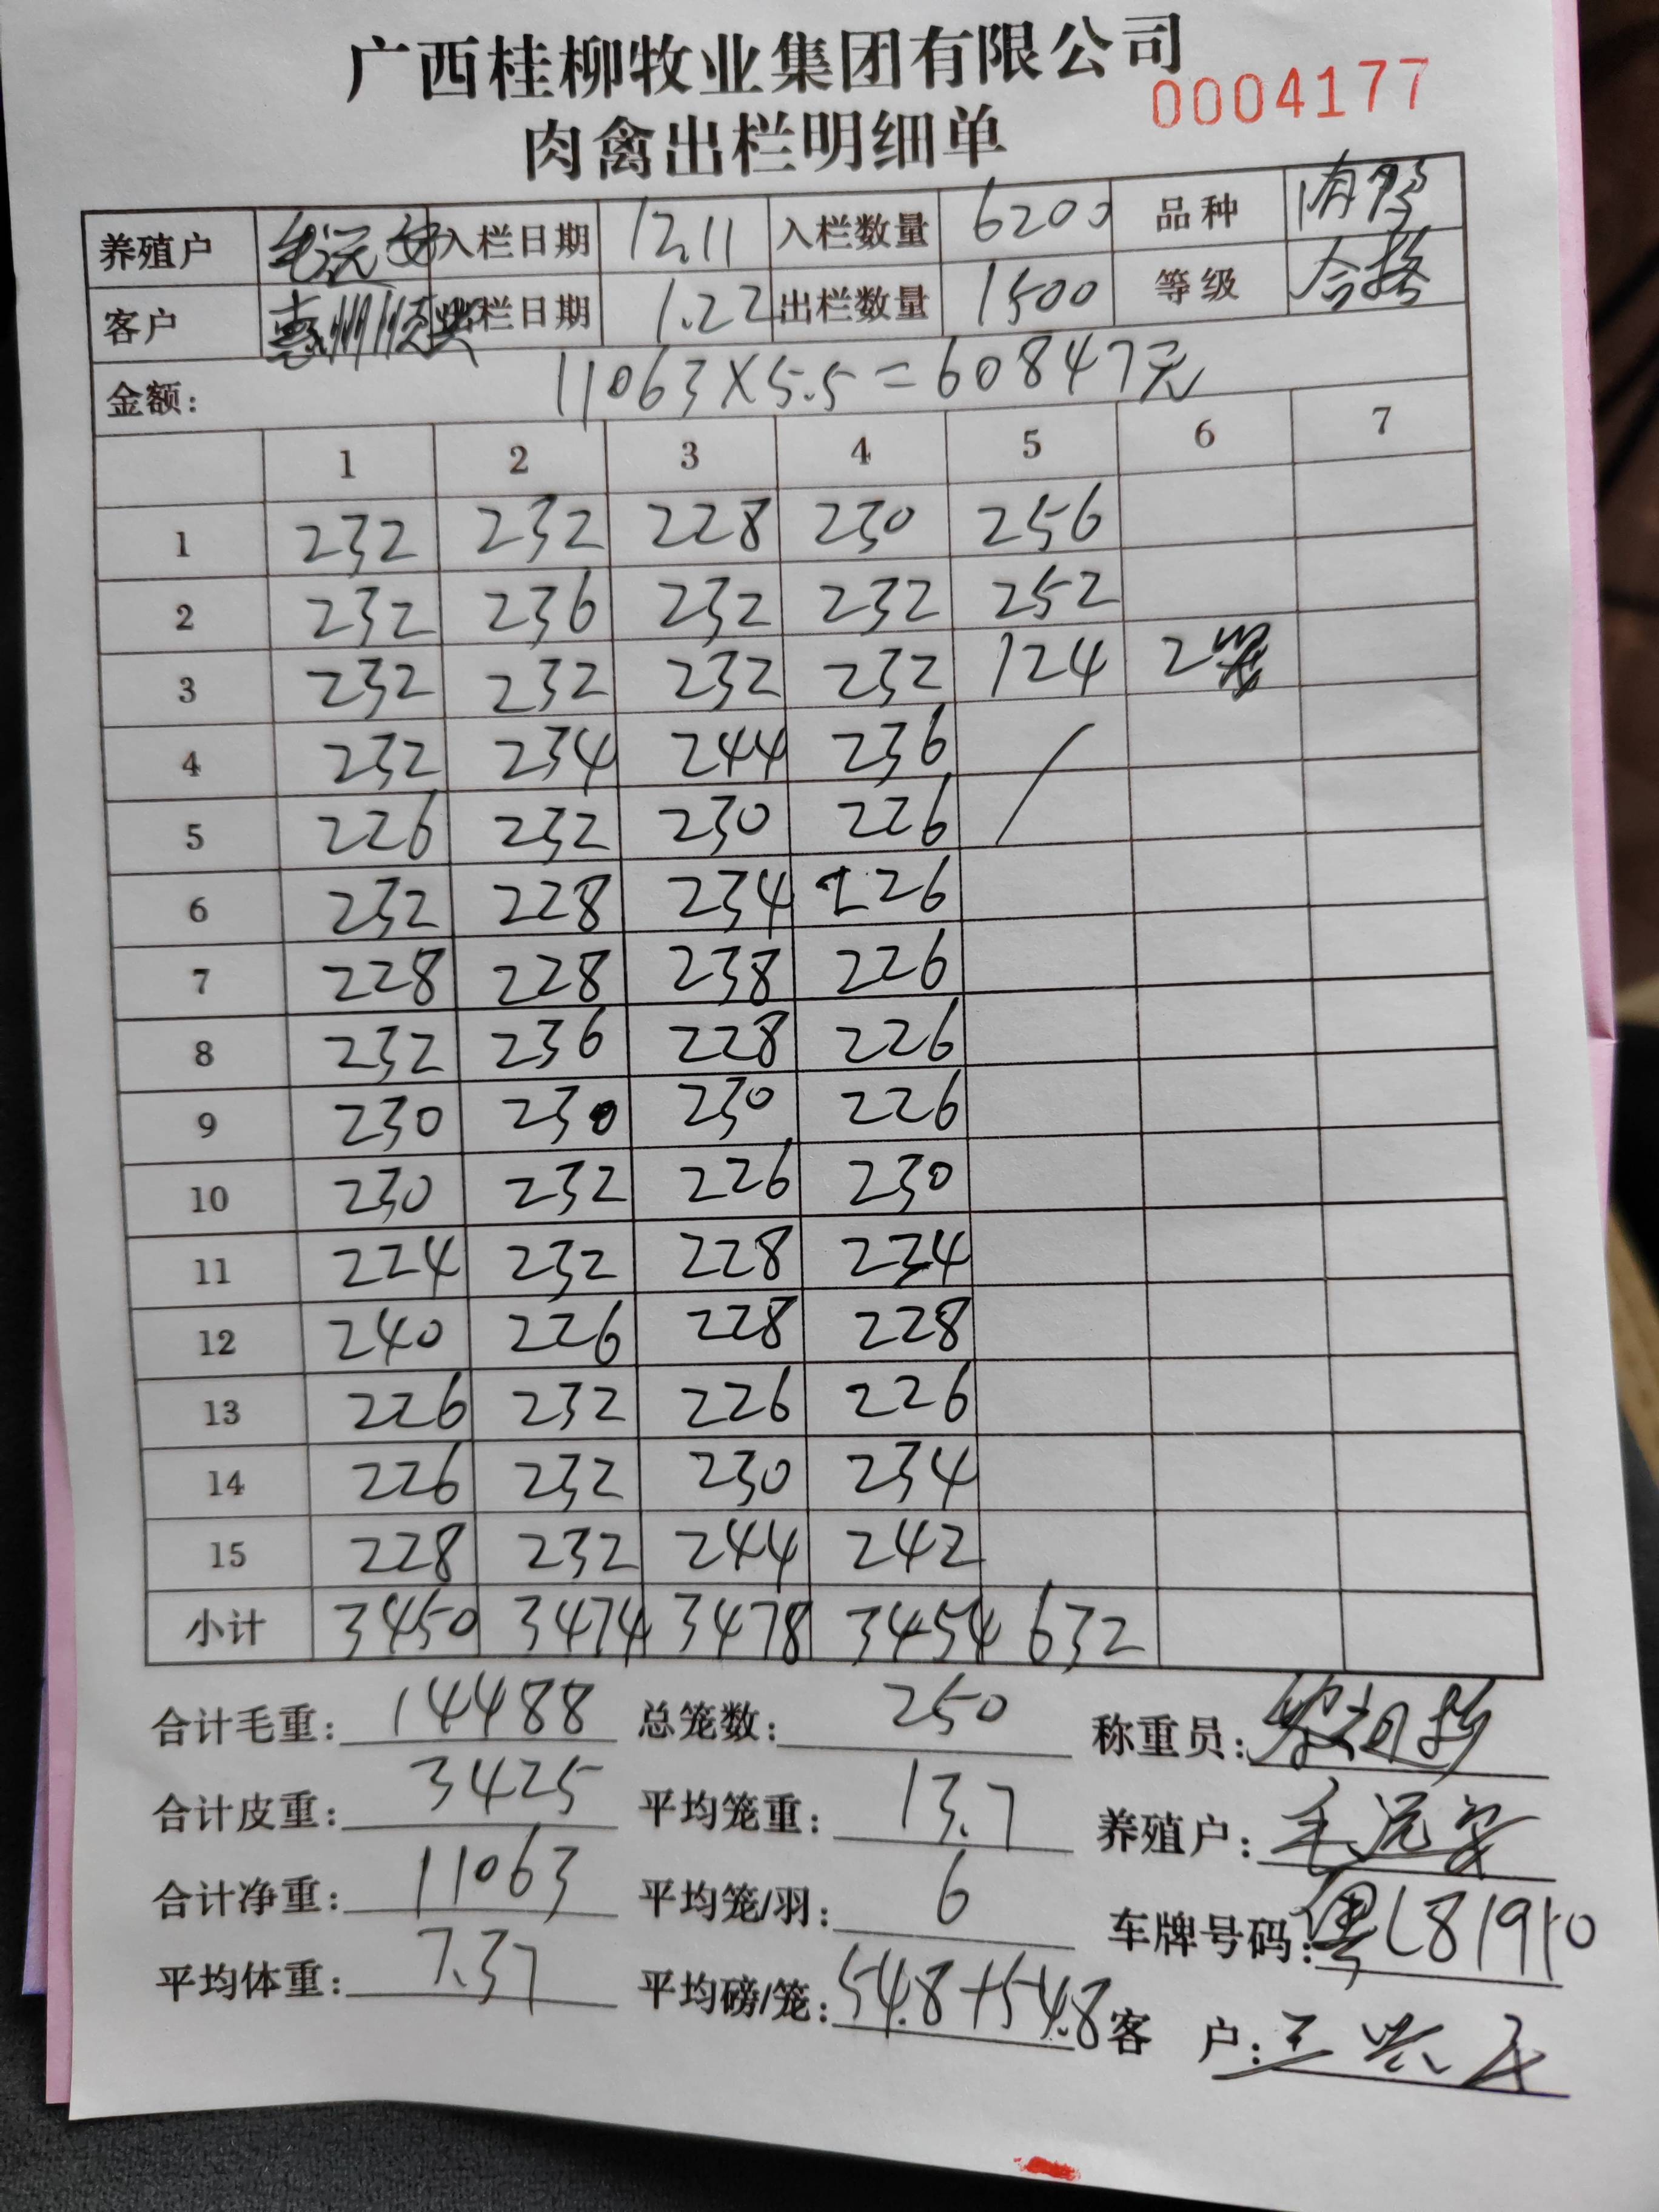 广西桂柳牧业集团有限公司
0004177
肉禽出栏明细单
养殖户 毛远安 入栏日期 12.11 入栏数量 6200 品种 肉鸭
客户 惠州顺兴 出栏日期 1.22 出栏数量 1500 等级 合格
金额: 11063×5.5=60847元
1 2 3 4 5 6 7
1 232 232 228 230 256
2 232 236 232 232 252
3 232 232 232 232 124 2
4 232 234 244 236
5 226 232 230 226
6 232 228 234 226
7 228 228 238 226
8 232 236 228 226
9 230 230 230 226
10 230 232 226 230
11 224 232 228 234
12 240 226 228 228
13 226 232 226 226
14 226 232 230 234
15 228 232 244 242
小计 3450 3474 3478 3454 632
合计毛重: 14488 总笼数: 250 称重员:
合计皮重: 3425 平均笼重: 13.7 养殖户: 毛远安
合计净重: 11063 平均笼/羽: 6 车牌号码: 粤L81910
平均体重: 7.37 平均磅/笼: 54.8+54.8 客 户: